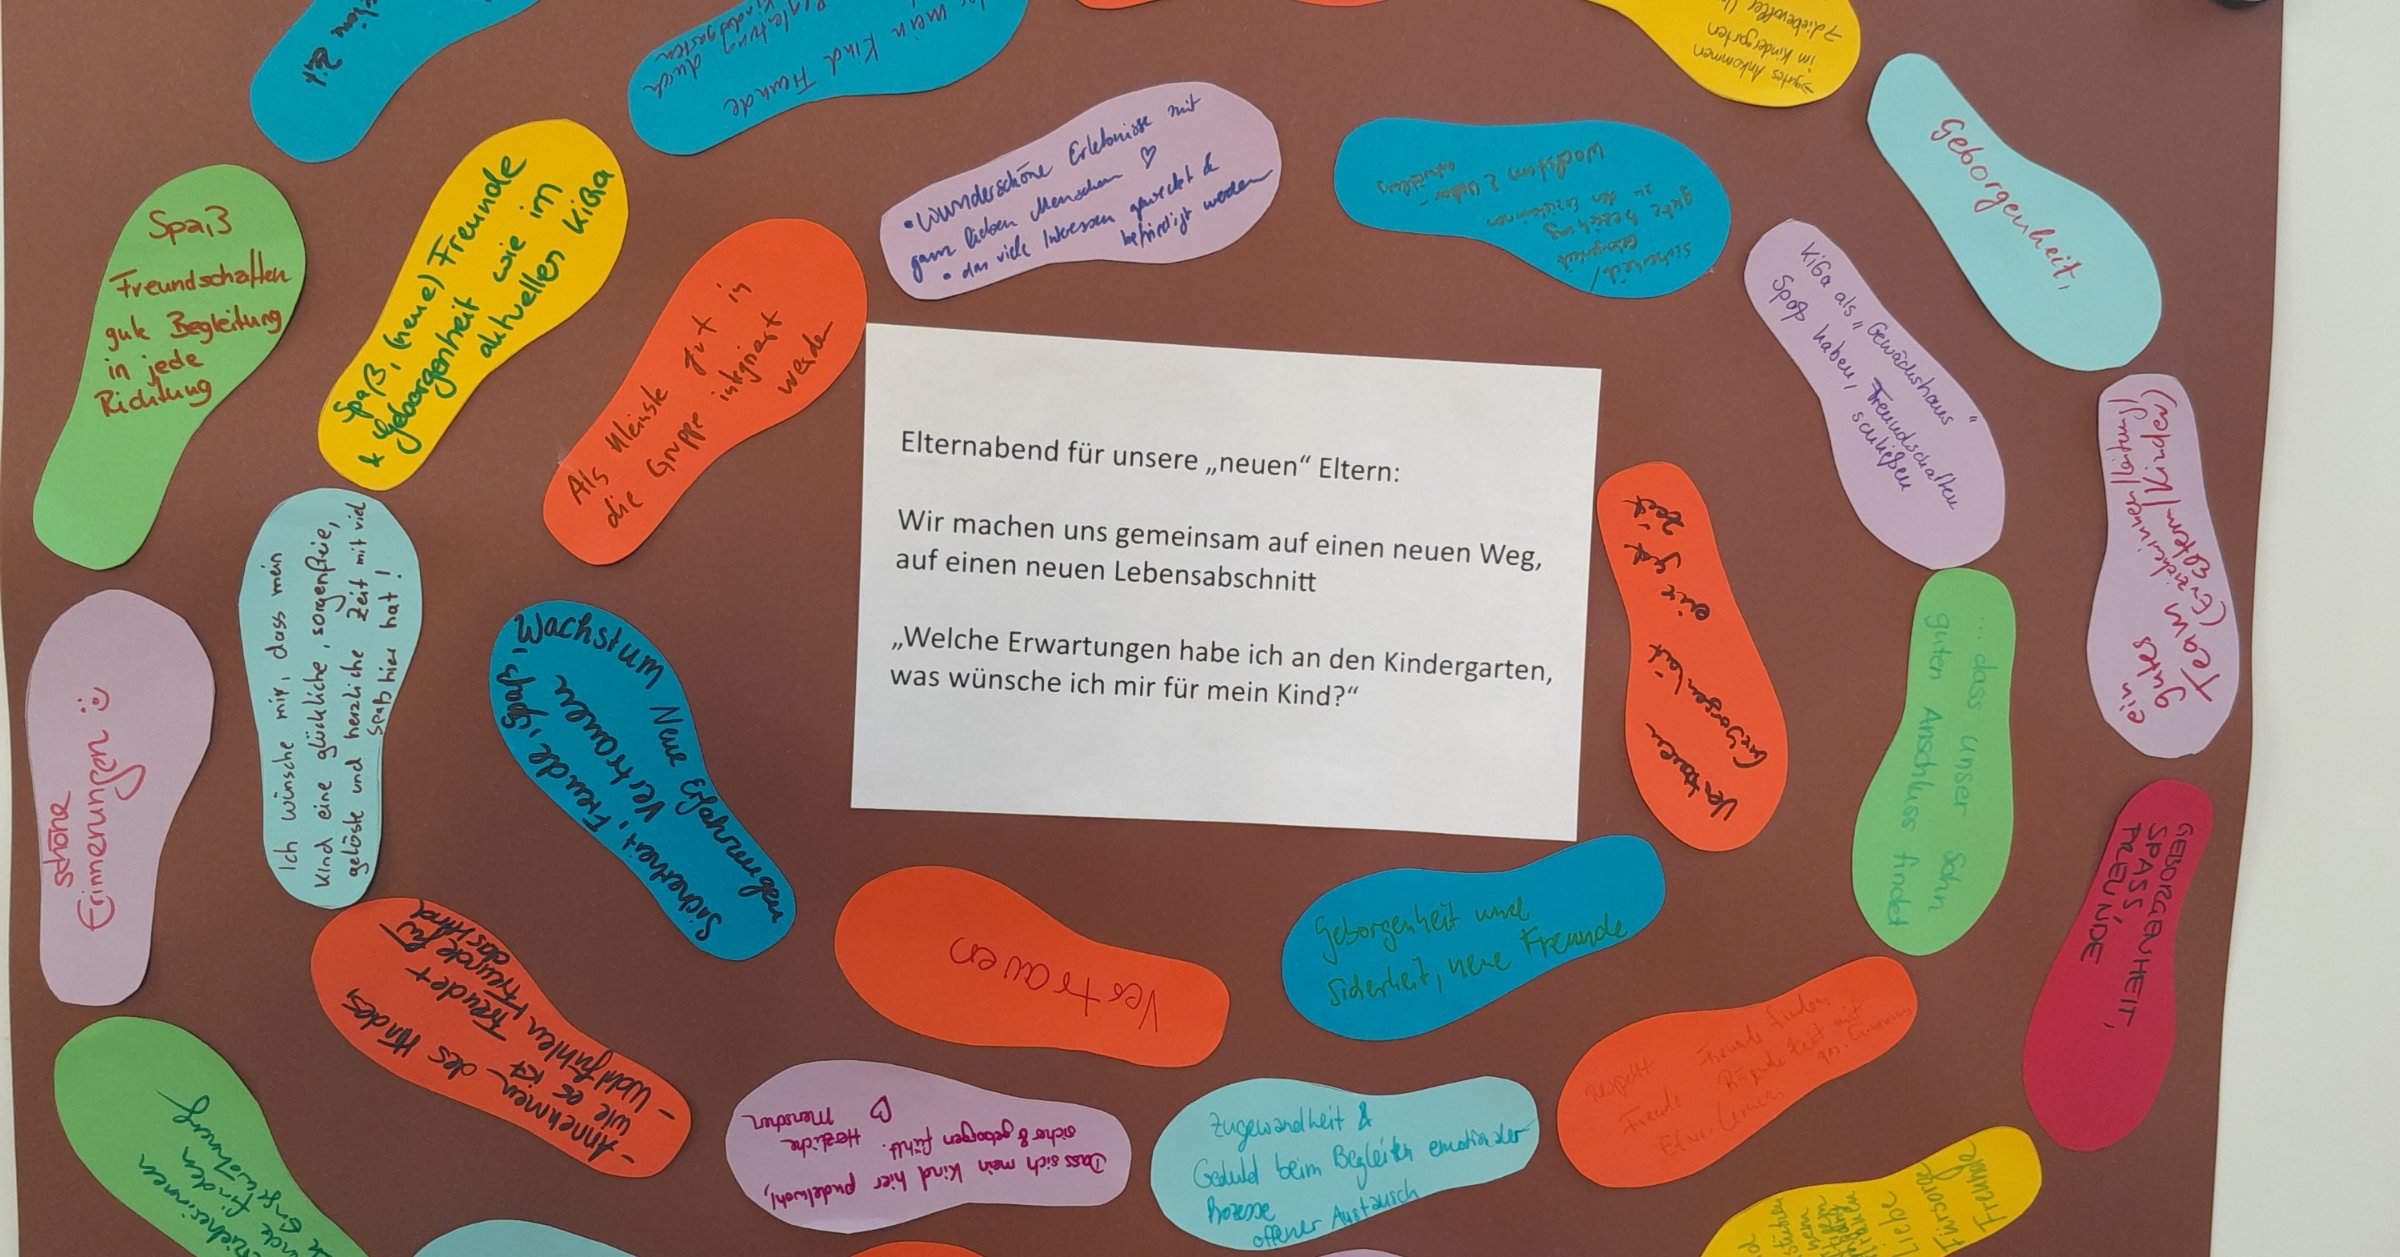 schöne Zeit
mein Kind Freunde
Begleitung durch
→ gutes Ankommen
im Kindergarten
→ liebevoller
Geborgenheit,
• wunderschöne Erlebnisse mit
ganz lieben Menschen ♡
• das viele Interessen geweckt &
befriedigt werden
Sicherheit /
gute Beziehung
zu den Erzieherinnen
Wachstum &
Spaß
Freundschaften
gute Begleitung
in jede
Richtung
Spaß, (neue) Freunde
& Geborgenheit wie im
aktuellen KiGa
Als kleinste gut in
die Gruppe integriert
werden
KiGa als „Gewächshaus“
Spaß haben, Freundschaften
schließen
ein
gutes
Team
(Erzieherinnen/Leitung/
Eltern/Kinder)
Elternabend für unsere „neuen“ Eltern:
Wir machen uns gemeinsam auf einen neuen Weg,
auf einen neuen Lebensabschnitt
„Welche Erwartungen habe ich an den Kindergarten,
was wünsche ich mir für mein Kind?“
Vertrauen
Geborgenheit
Zeit
... dass unser Sohn
guten Anschluss findet
Ich wünsche mir, dass mein
Kind eine glückliche, sorgenfreie,
gelöste und herzliche Zeit mit viel
Spaß hier hat!
schöne
Erinnerungen
Wachstum Neue Erfahrungen
Vertrauen
Sicherheit, Freunde, Spaß,
GEBORGENHEIT,
SPASS,
FREUNDE
Vertrauen
Geborgenheit und
Sicherheit, neue Freunde
- Annehmen des Kindes,
wie es ist
- Wohlfühlen Freude +
Freunde für
das Kind
Respekt Freunde finden
Freude
Dass sich mein Kind hier pudelwohl,
sicher & geborgen fühlt. Herzliche
Menschen ♡
Zugewandheit &
Geduld beim Begleiten emotionaler
Prozesse
offener Austausch
finden
Eingewöhnung
Freunde
Fürsorge
Liebe